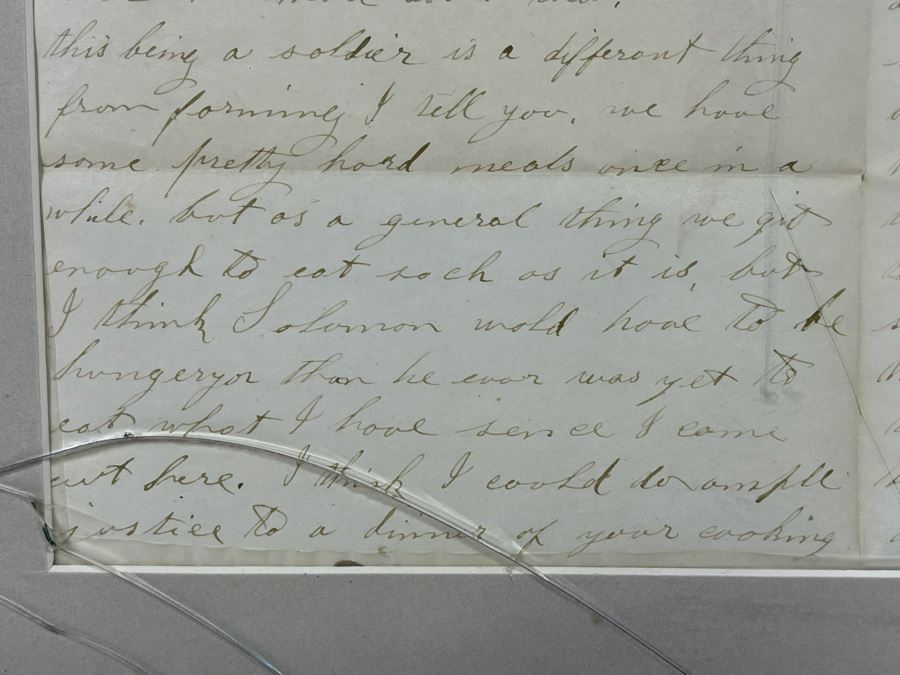 this being a soldier is a different thing
from forming I tell you. we have
some pretty hard meals once in a
while. but as a general thing we git
enough to eat such as it is, but
I think Solomon wold have to be
hungeryor than he ever was yet to
eat what I have sence I came
out here. I think I could do ample
justice to a dinner of your cooking